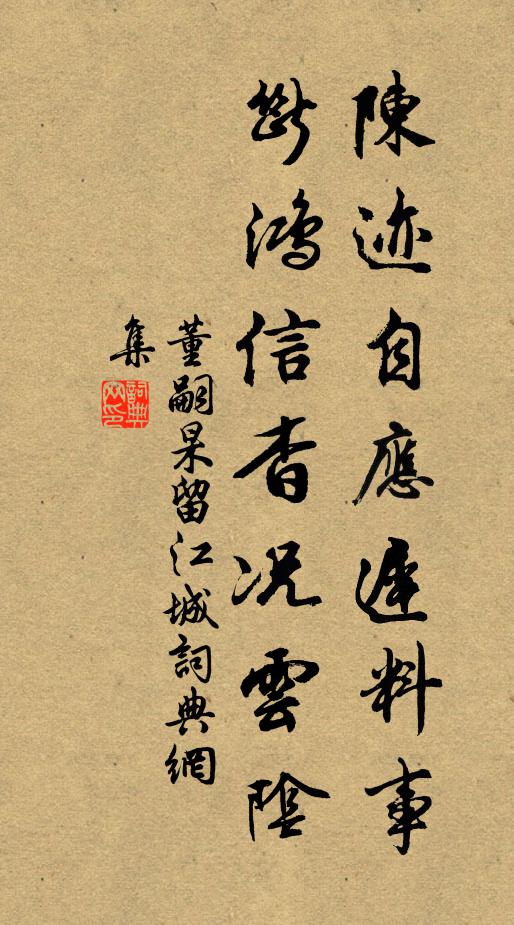 陳迹自應遲料事
斷鴻信杳况雲陰
董嗣杲留江城詞典網
集
詞典
网印